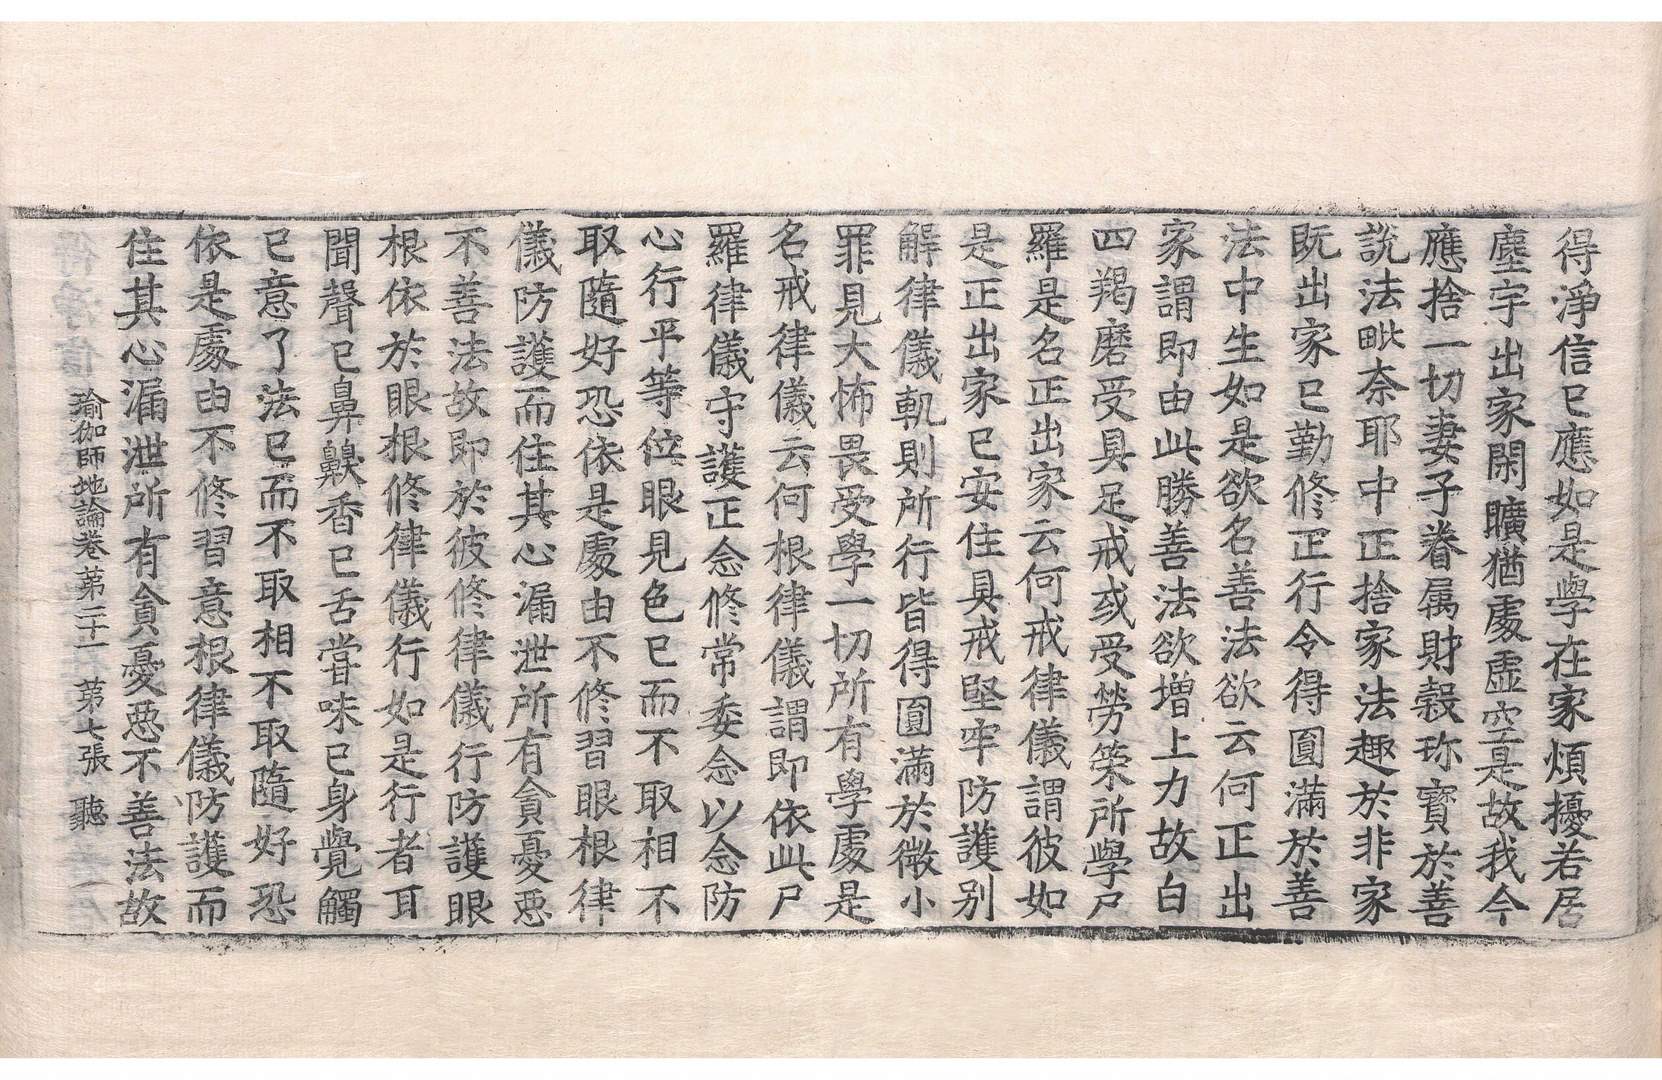 得淨信已應如是學在家煩擾若居
塵宇出家閑曠猶處虛空是故我今
應捨一切妻子眷属財糓珎寶於善
說法毗奈耶中正捨家法趣於非家
既出家已勤修正行令得圓滿於善
法中生如是欲名善法欲云何正出
家謂即由此勝善法欲增上力故白
四羯磨受具足戒或受勞策所學尸
羅是名正出家云何戒律儀謂彼如
是正出家已安住具戒堅牢防護别
解律儀軌則所行皆得圓滿於微小
罪見大怖畏受學一切所有學處是
名戒律儀云何根律儀謂即依此尸
羅律儀守護正念修常委念以念防
心行平等位眼見色已而不取相不
取隨好恐依是處由不修習眼根律
儀防護而住其心漏泄所有貪憂惡
不善法故即於彼修律儀行防護眼
根依於眼根修律儀行如是行者耳
聞聲已鼻齅香已舌甞味已身覺觸
已意了法已而不取相不取隨好恐
依是處由不修習意根律儀防護而
住其心漏泄所有貪憂惡不善法故
瑜伽師地論卷第二十一 第七張 聽